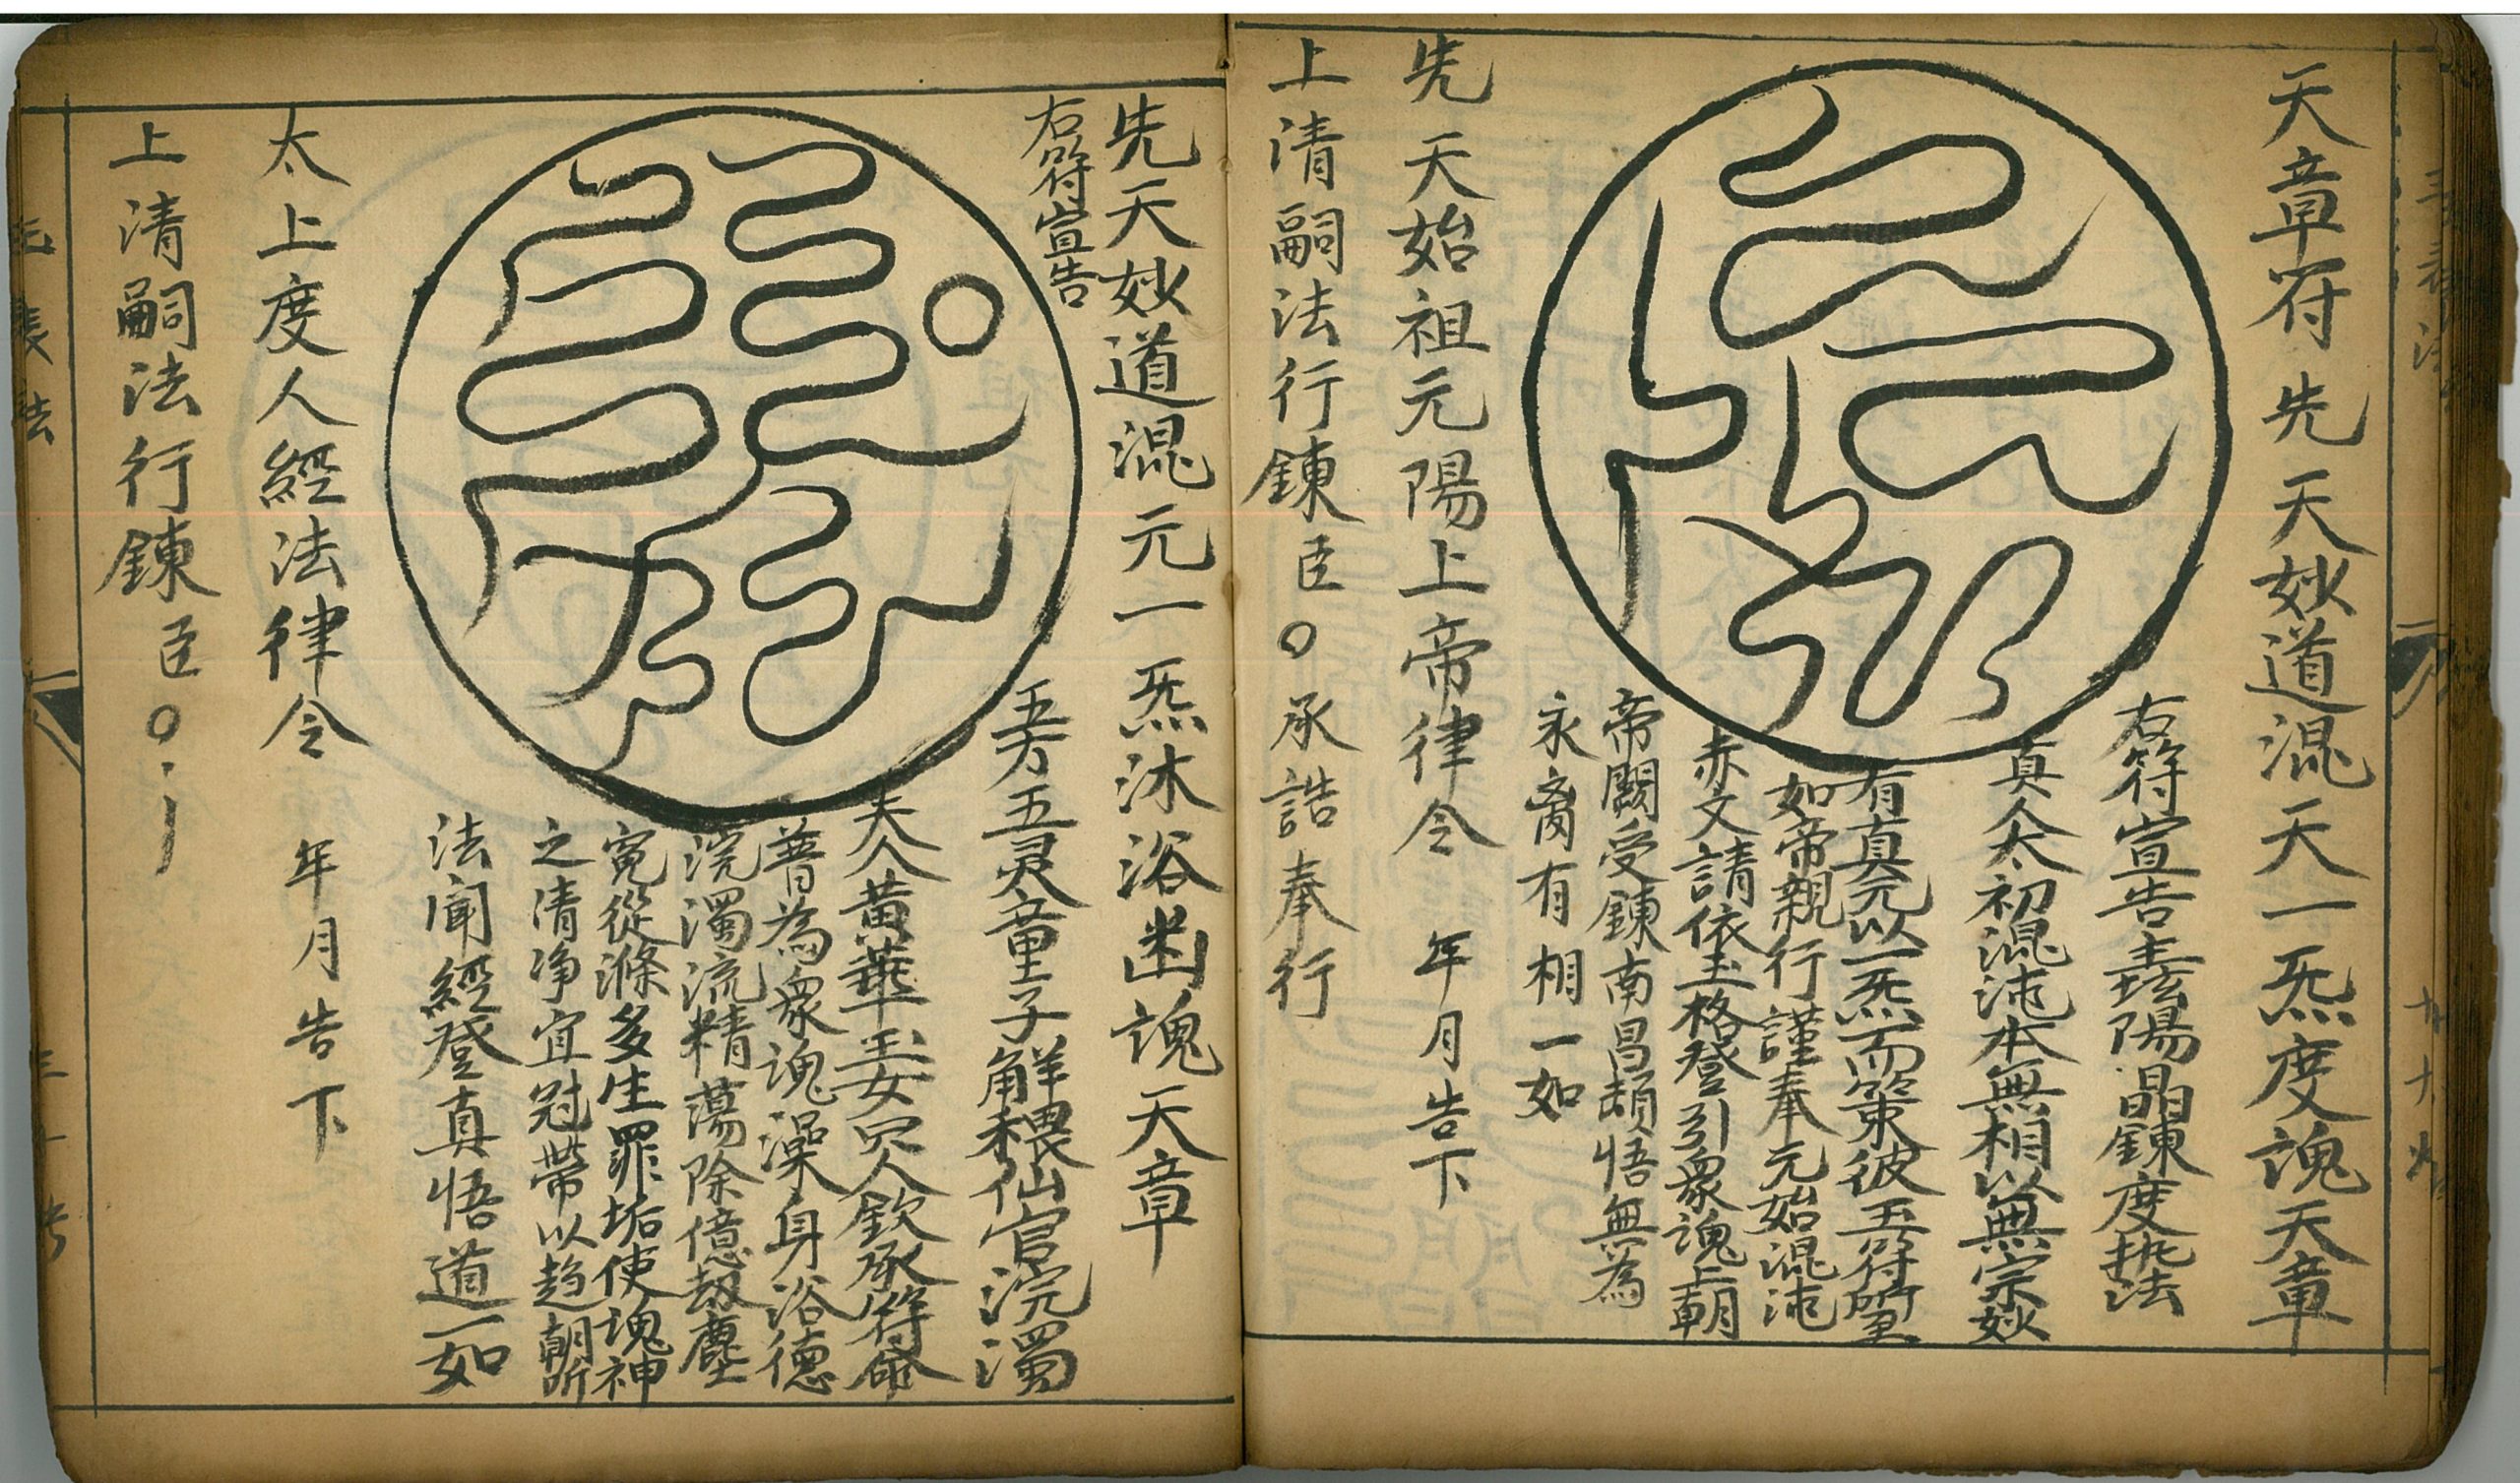 天章符先天妙道混天一炁度魂天章
右符宣告陽晶鍊度執法
真人太初混沌本無相以無宗妙
有真元以一炁而策彼玉符所
如帝親行謹奉元始混沌
赤文請依玉格登引衆魂上朝
帝闕受鍊南昌頓悟無為
永裔有相一如
先天始祖元陽上帝律令 年月告下
上清嗣法行鍊臣〇承誥奉行
先天妙道混元一炁沐浴幽魂天章
右符宣告
五方五灵童子解穢仙官浣濁
夫人黃華玉女穴人欽承符命
普為衆魂澡身浴德
浣濁流精蕩除億劫塵
寃從滌多生罪垢使魂神
之清净宜冠帶以趋朝听
法聞經登真悟道一如
太上度人經法律令 年月告下
上清嗣法行鍊臣〇